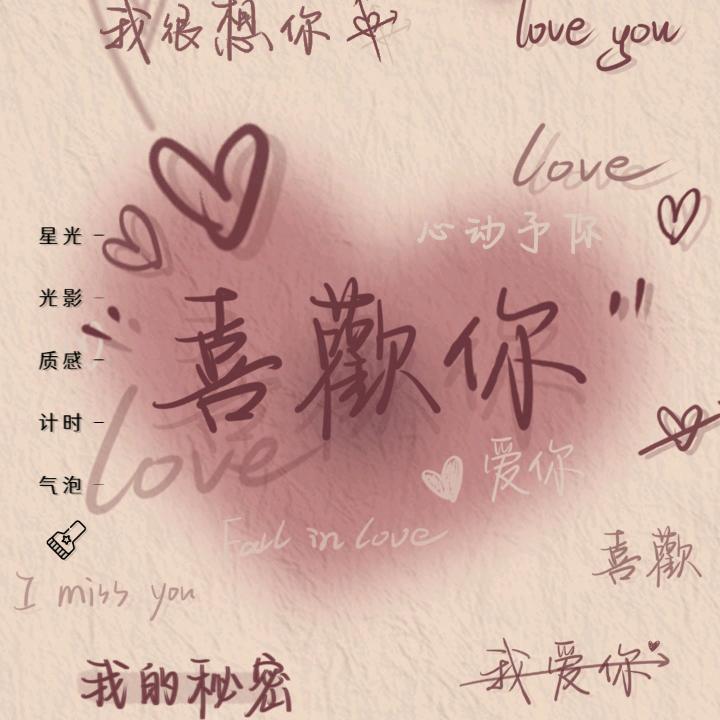 我很想你
love you
love
心动予你
星光
光影
喜歡你
质感
计时
love
气泡
爱你
Fall in love
喜歡
I miss you
我的秘密
我爱你